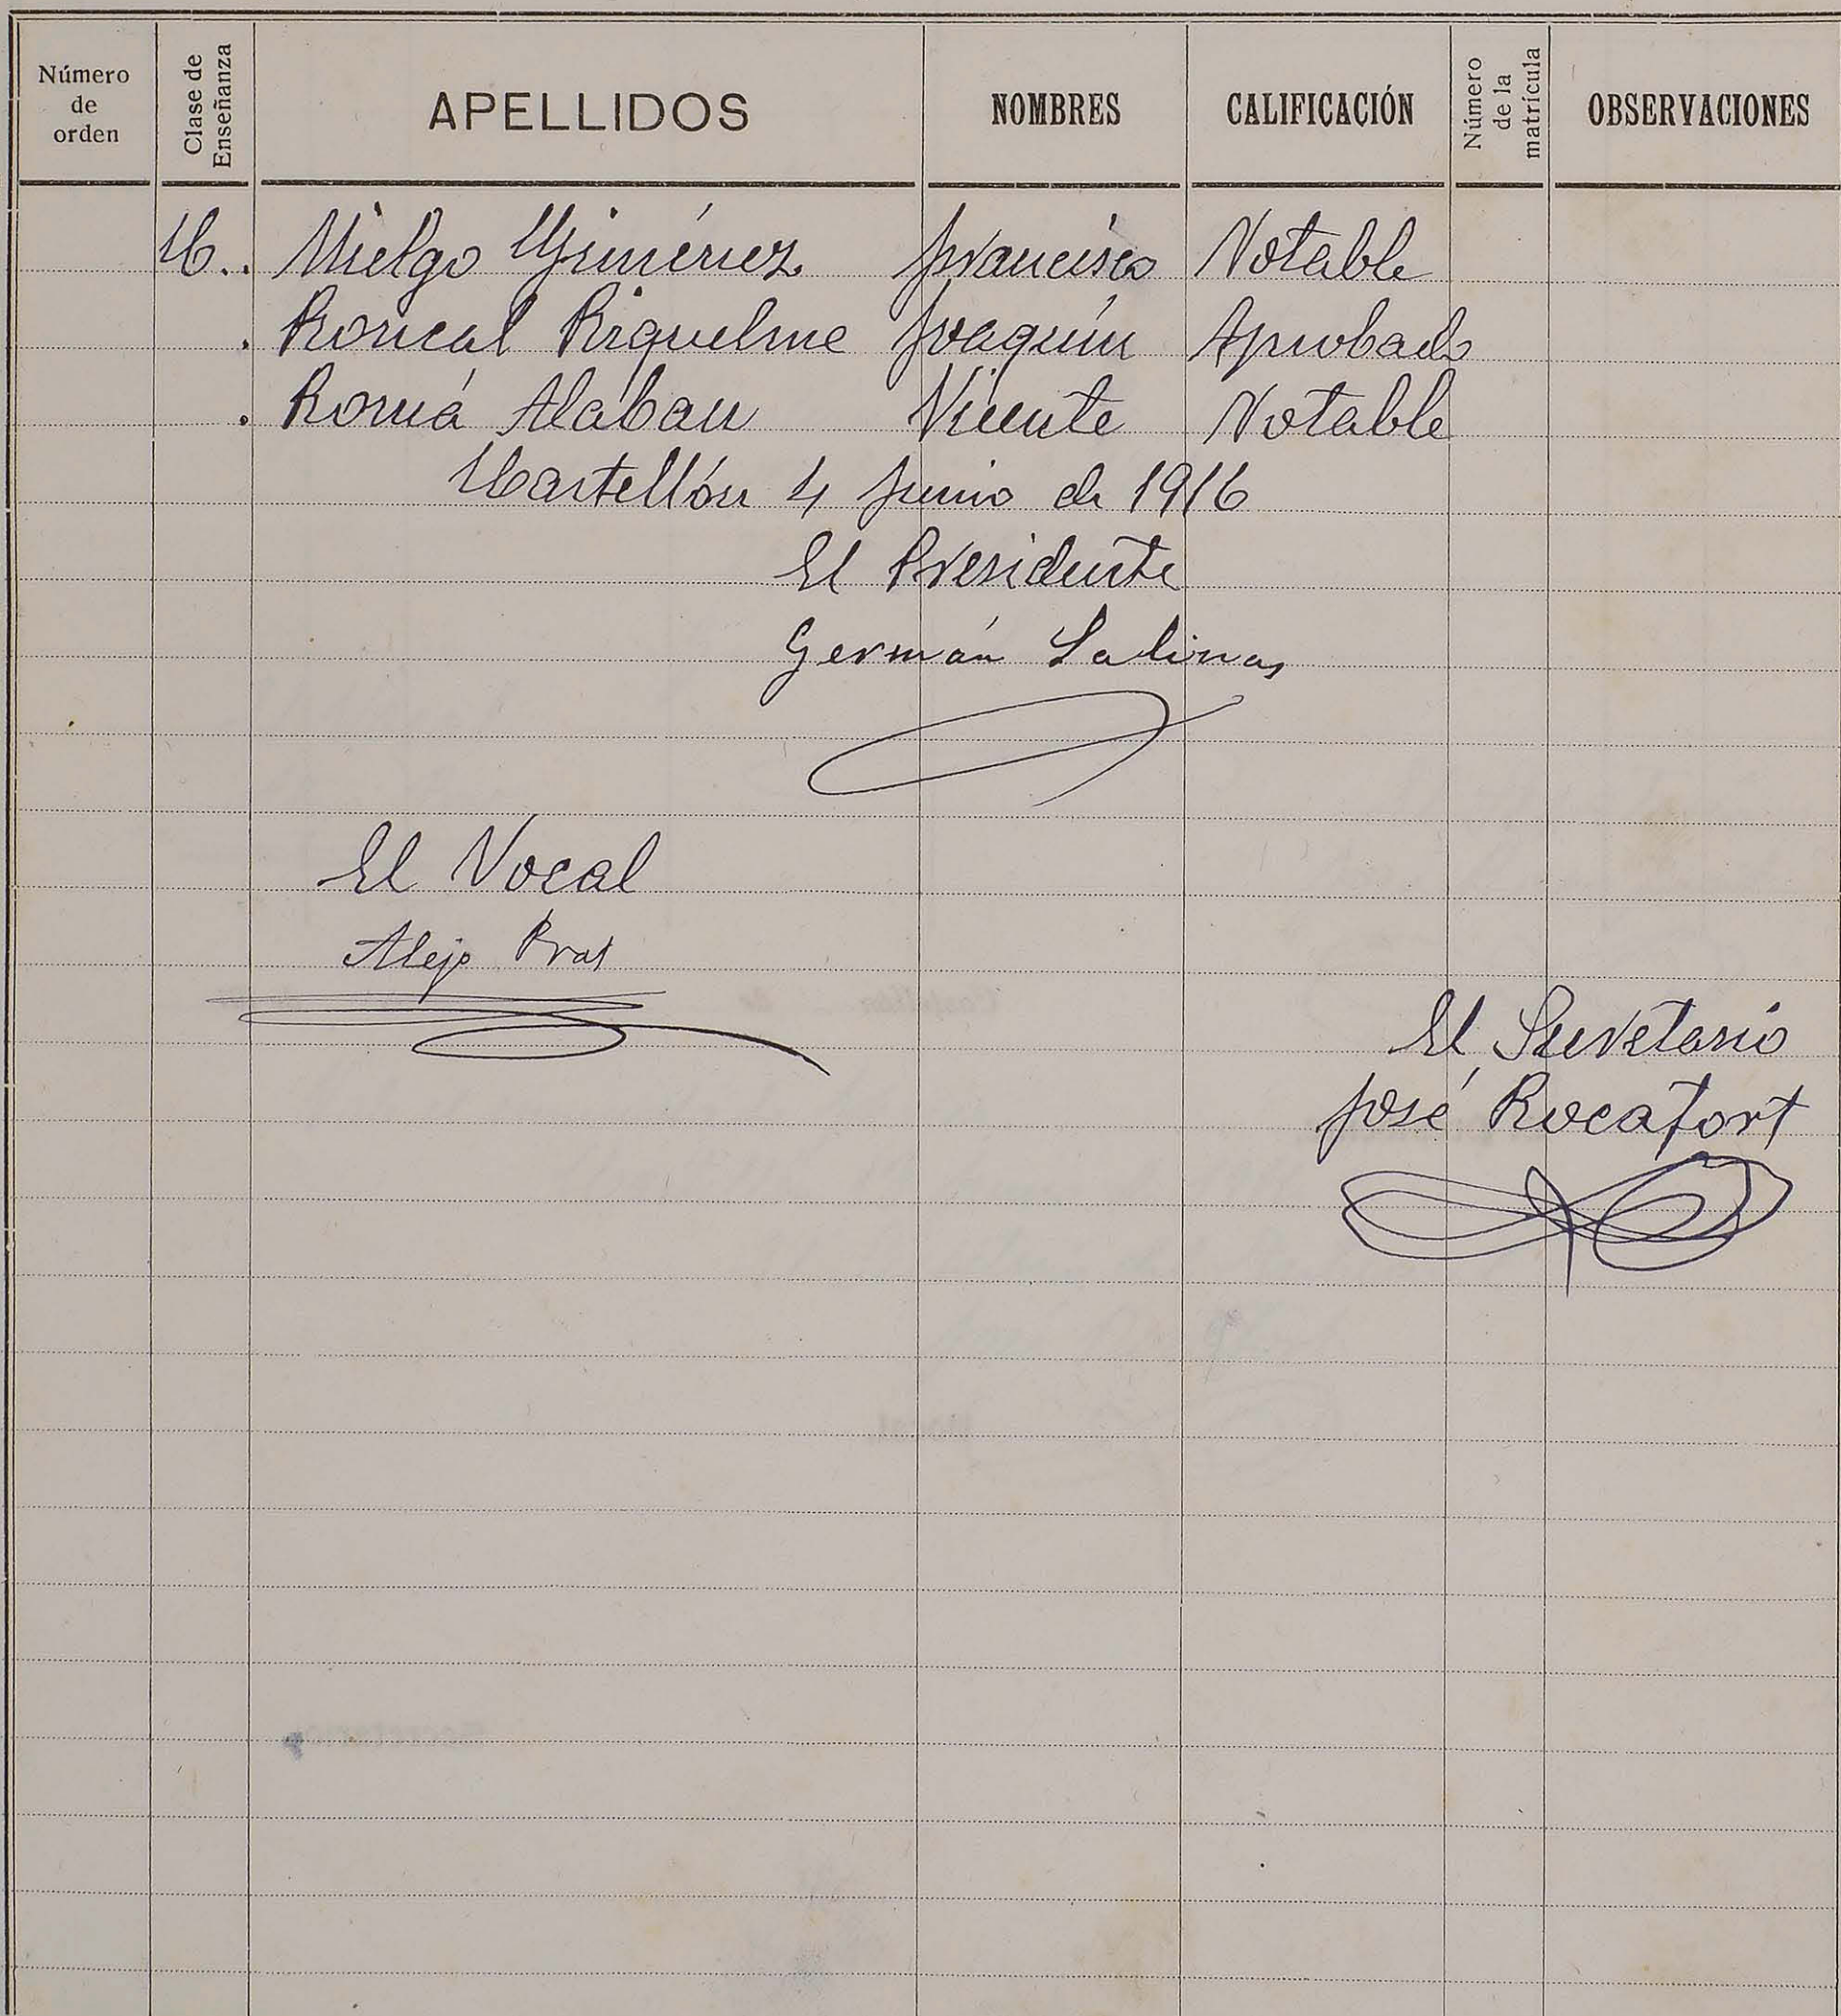 Número de orden | Clase de Enseñanza | APELLIDOS | NOMBRES | CALIFICACIÓN | Número de la matrícula | OBSERVACIONES
C.. Mielgo Giménez Francisco Notable
. Roncal Riquelme Joaquín Aprobado
. Romá Alabau Vicente Notable
Castellón 4 Junio de 1916
El Presidente
Germán Salinas
El Vocal
Alejo Prat
El Secretario
José Rocafort